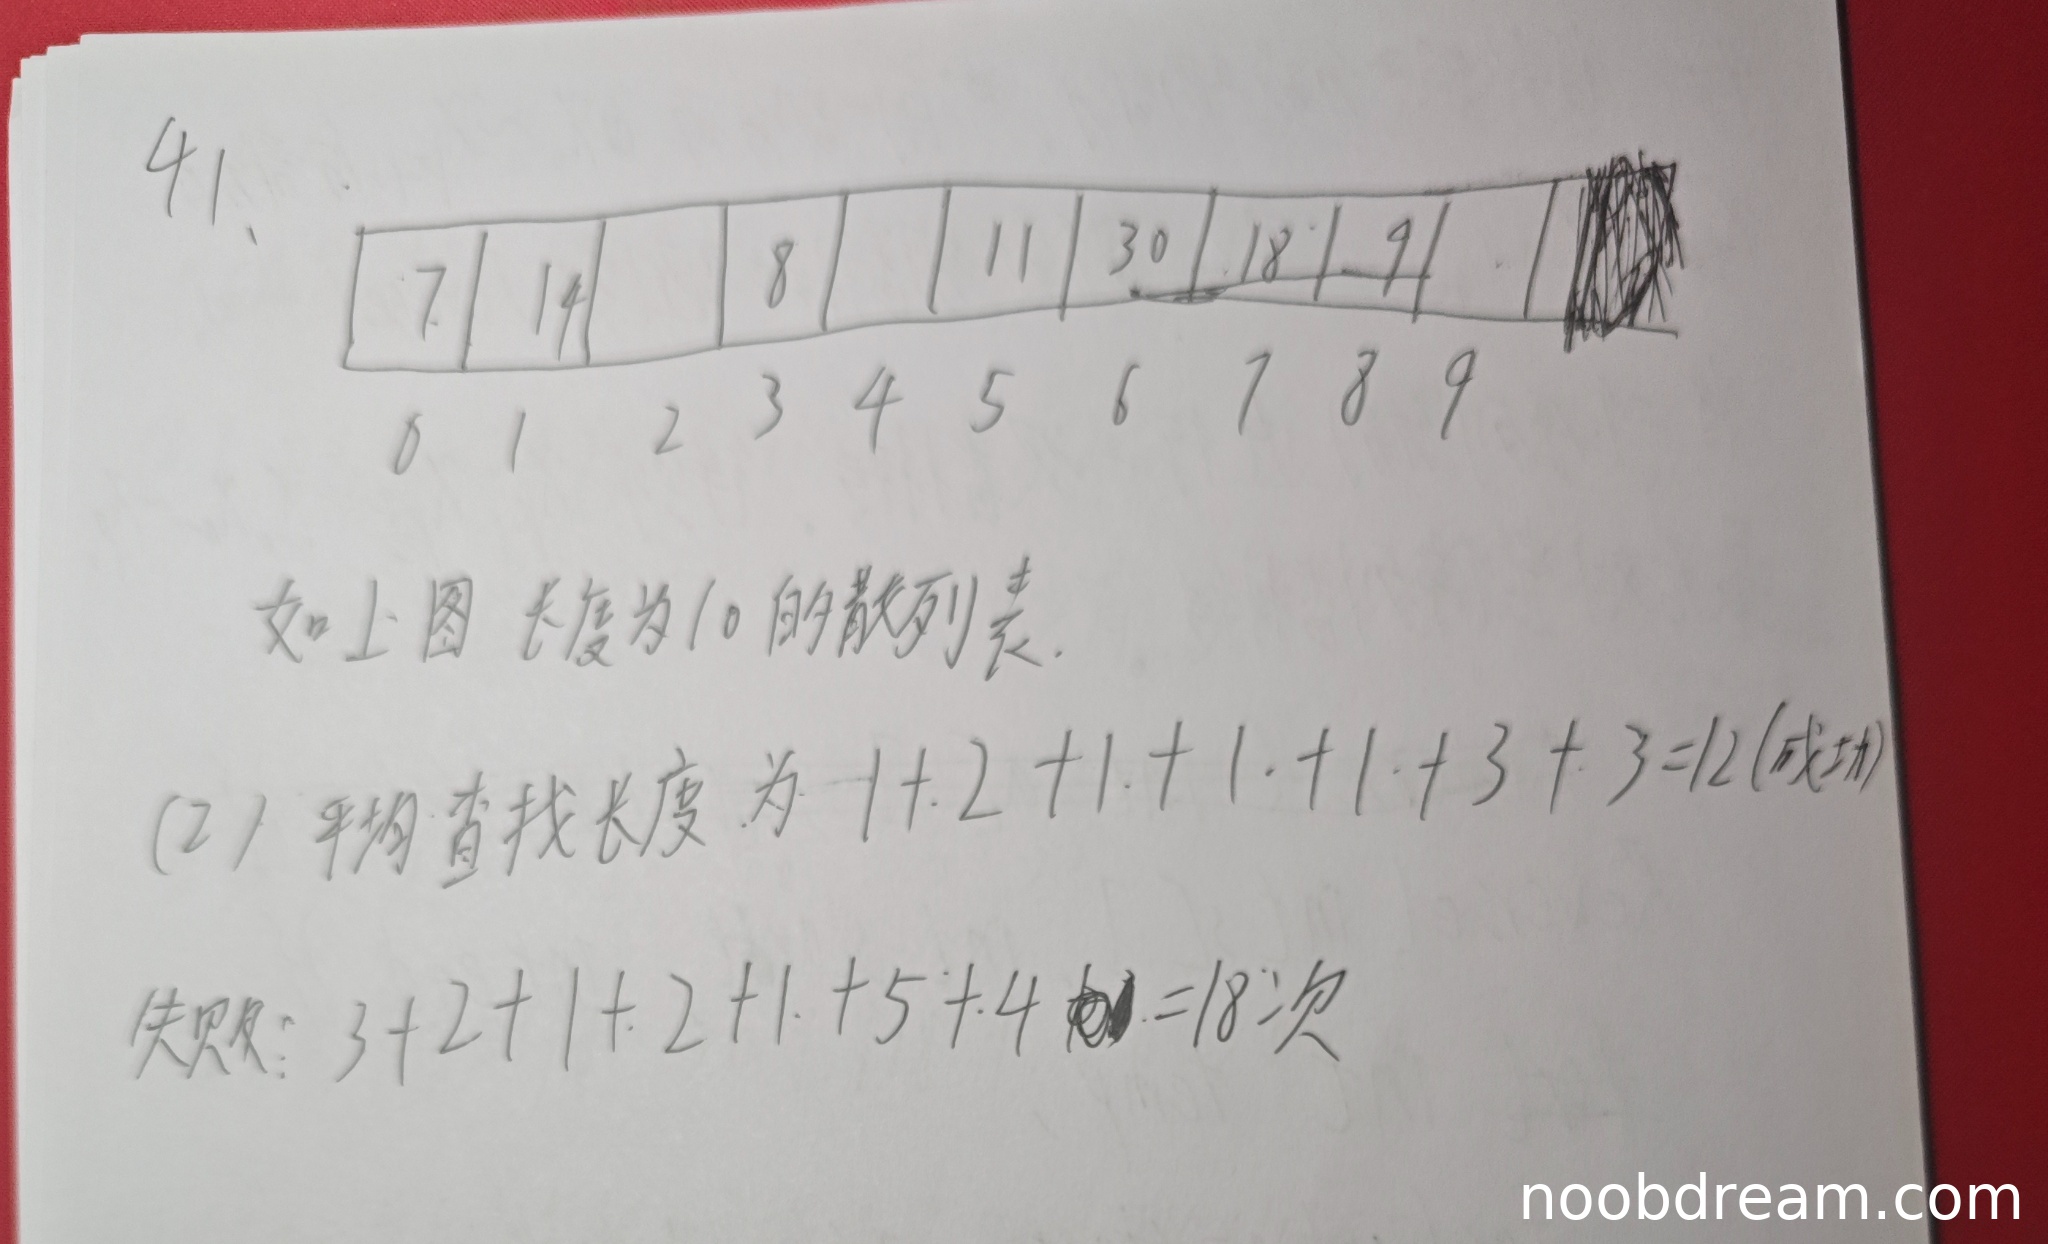 41、
7 14 8 11 30 18 9
0 1 2 3 4 5 6 7 8 9
如上图 长度为10的散列表.
(2) 平均查找长度为 1+2+1+1+1+3+3=12(成功)
失败: 3+2+1+2+1+5+4=18次
noobdream.com